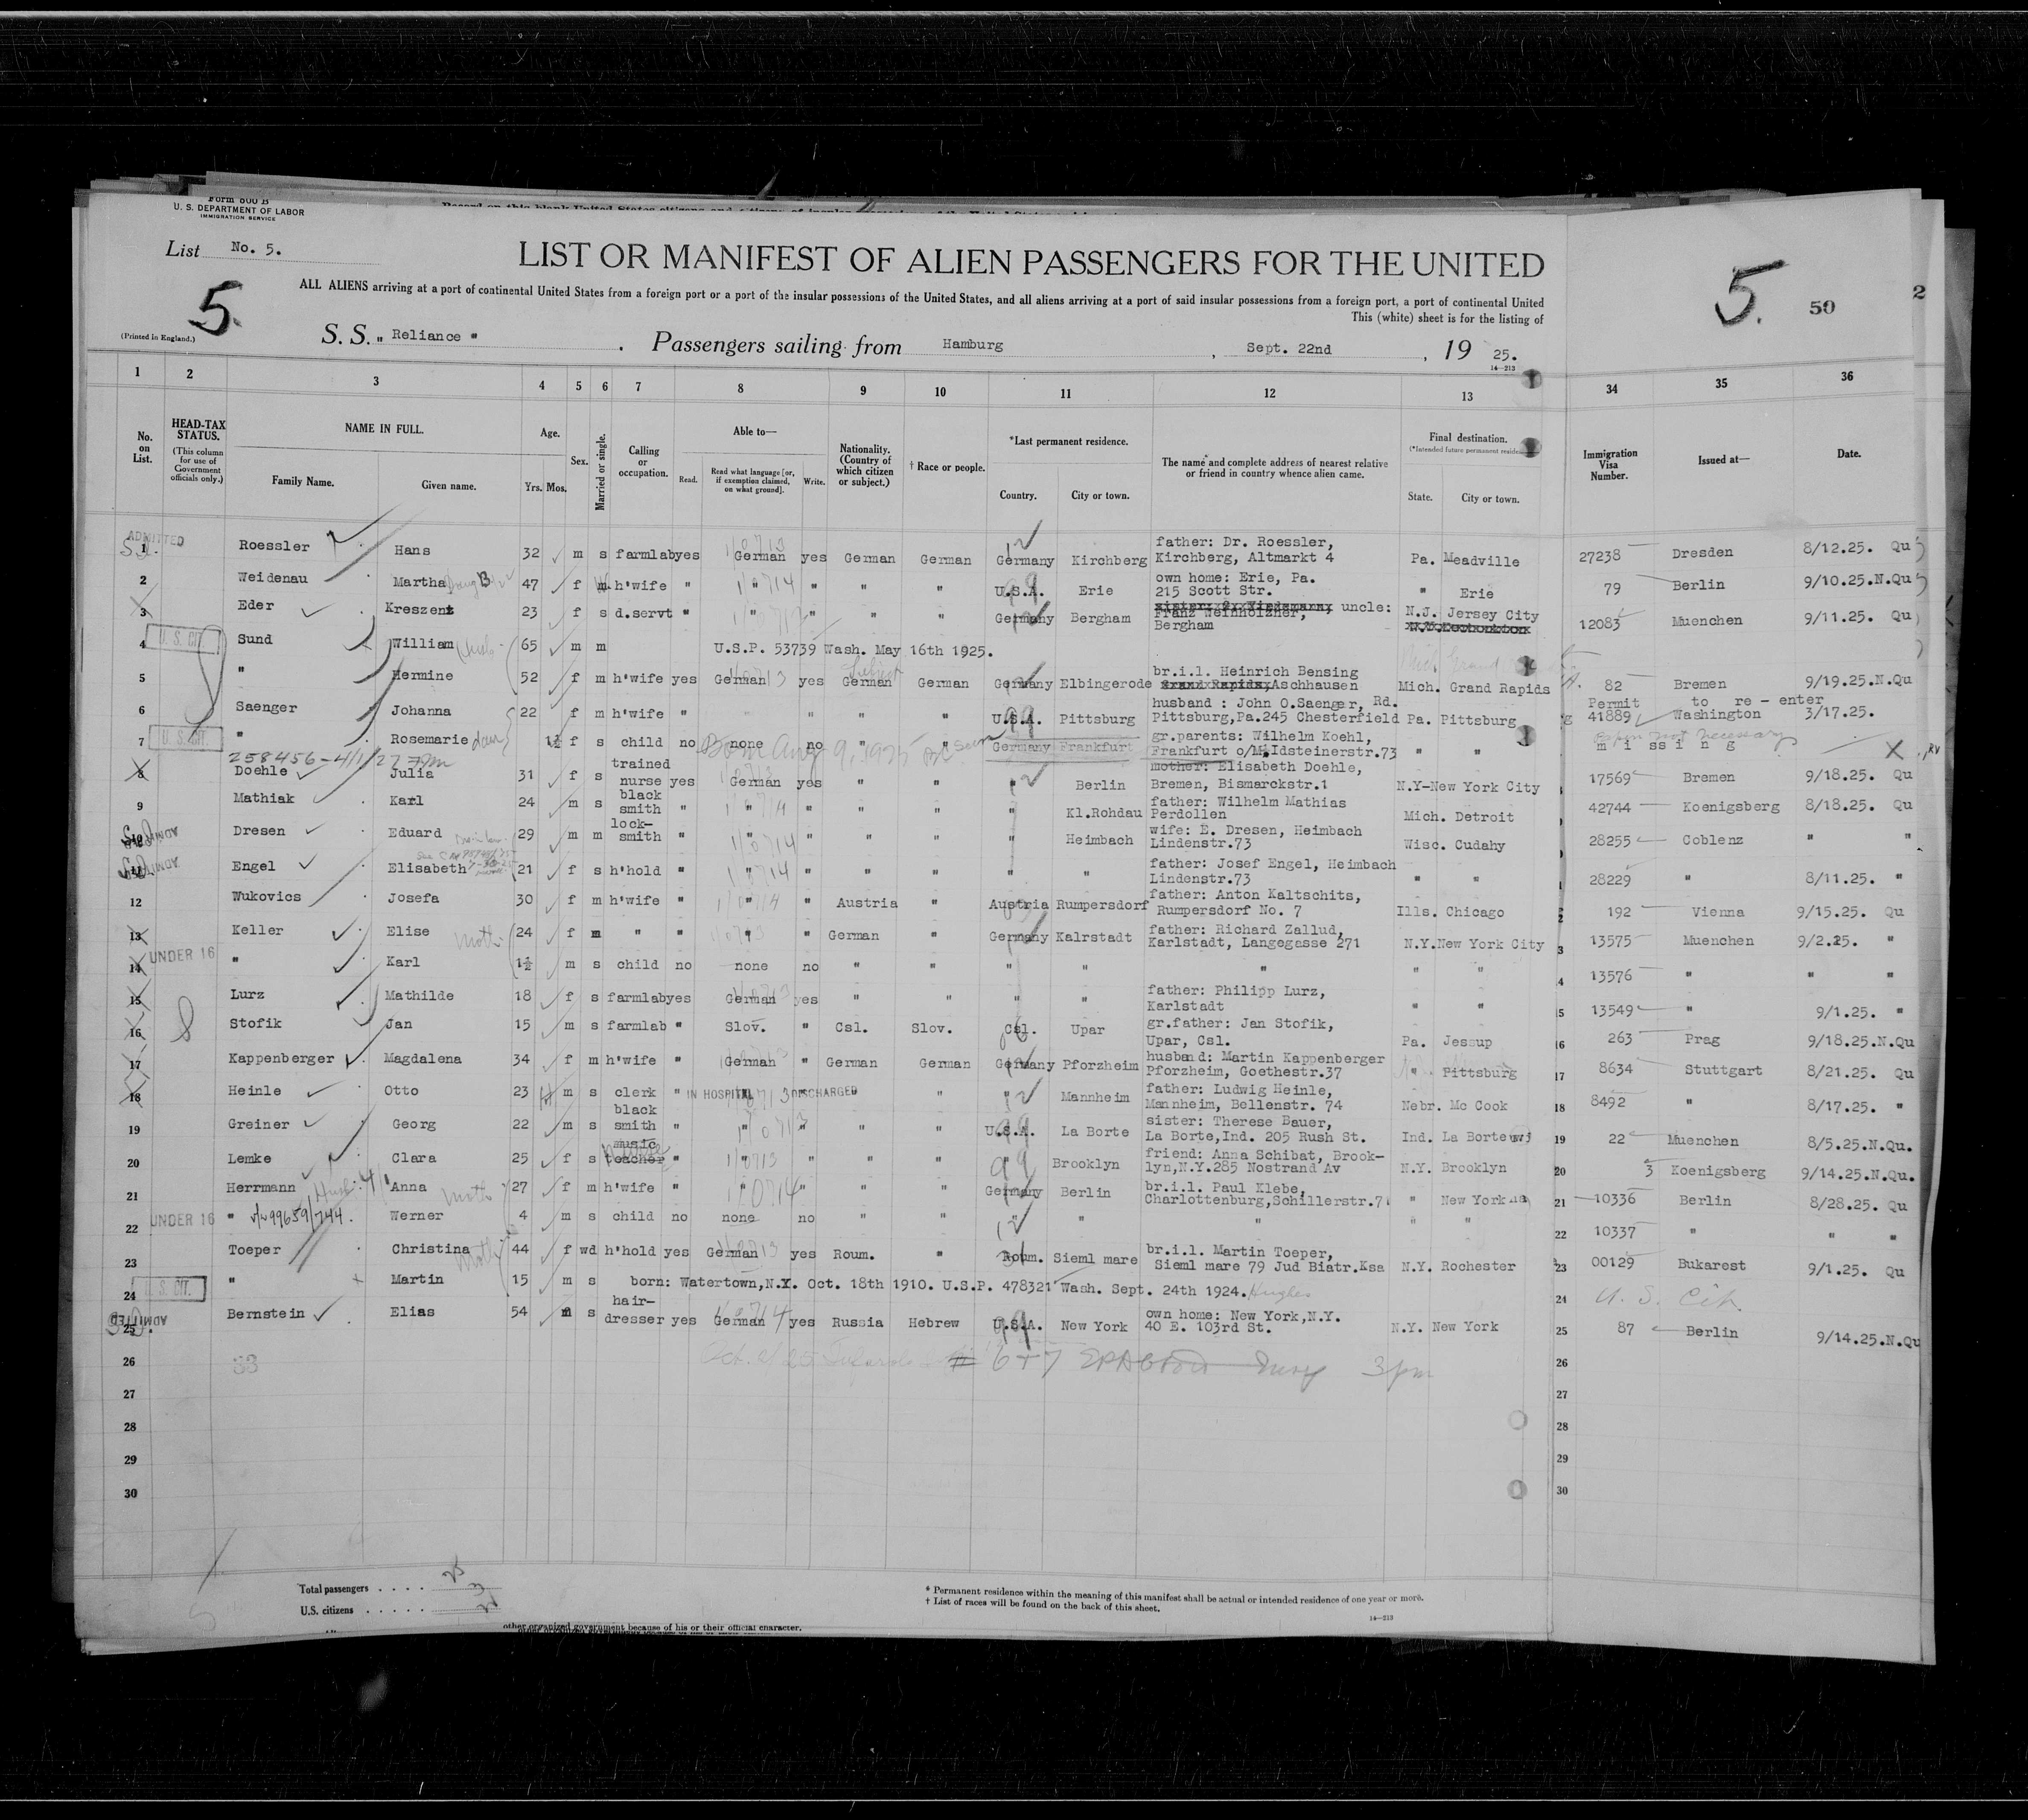 Form 800 B
U. S. DEPARTMENT OF LABOR
IMMIGRATION SERVICE
List No. 5.
LIST OR MANIFEST OF ALIEN PASSENGERS FOR THE UNITED
5. 50 2
5.
ALL ALIENS arriving at a port of continental United States from a foreign port or a port of the insular possessions of the United States, and all aliens arriving at a port of said insular possessions from a foreign port, a port of continental United
This (white) sheet is for the listing of
(Printed in England.)
S. S. " Reliance " . Passengers sailing from Hamburg , Sept. 22nd , 19 25.
14—213
1 2 3 4 5 6 7 8 9 10 11 12 13 34 35 36
No. on List. HEAD-TAX STATUS. (This column for use of Government officials only.) NAME IN FULL. Family Name. Given name. Age. Yrs. Mos. Sex. Married or single. Calling or occupation. Able to— Read. Read what language [or, if exemption claimed, on what ground]. Write. Nationality. (Country of which citizen or subject.) † Race or people. *Last permanent residence. Country. City or town. The name and complete address of nearest relative or friend in country whence alien came. Final destination. State. City or town. Immigration Visa Number. Issued at— Date.
ADMITTED
1 Roessler Hans 32 m s farmlab yes German yes German German Germany Kirchberg father: Dr. Roessler, Kirchberg, Altmarkt 4 Pa. Meadville 27238 Dresden 8/12.25. Qu
2 Weidenau Martha 47 f m h'wife " " " " " U.S.A. Erie own home: Erie, Pa. 215 Scott Str. " Erie 79 Berlin 9/10.25.N.Qu
3 Eder Kreszent 23 f s d.servt " " " " " Germany Bergham uncle: Franz Weinholzner, Bergham N.J. Jersey City 12083 Muenchen 9/11.25. Qu
U. S. CIT.
4 Sund William 65 m m U.S.P. 53739 Wash. May 16th 1925.
5 " Hermine 52 f m h'wife yes German yes German German Germany Elbingerode br.i.l. Heinrich Bensing Grand Rapids, Aschhausen Mich. Grand Rapids 82 Bremen 9/19.25.N.Qu
6 Saenger Johanna 22 f m h'wife " " " " " U.S.A. Pittsburg husband : John O.Saenger, Rd. Pittsburg,Pa.245 Chesterfield Pa. Pittsburg Permit to re - enter 41889 Washington 3/17.25.
U. S. CIT.
7 " Rosemarie 1½ f s child no none no " " Germany Frankfurt gr.parents: Wilhelm Koehl, Frankfurt o/M.Idsteinerstr.73 " " m i s s i n g
Born Aug 9, 1925
258456-4/1/27
8 Doehle Julia 31 f s trained nurse yes German yes " " " Berlin mother: Elisabeth Doehle, Bremen, Bismarckstr.1 N.Y-New York City 17569 Bremen 9/18.25. Qu
9 Mathiak Karl 24 m s black smith " " " " " " Kl.Rohdau father: Wilhelm Mathias Perdollen Mich. Detroit 42744 Koenigsberg 8/18.25. Qu
10 Dresen Eduard 29 m m lock-smith " " " " " " Heimbach wife: E. Dresen, Heimbach Lindenstr.73 Wisc. Cudahy 28255 Coblenz " "
11 Engel Elisabeth 21 f s h'hold " " " " " " " father: Josef Engel, Heimbach Lindenstr.73 " " 28229 " 8/11.25. "
12 Wukovics Josefa 30 f m h'wife " " " Austria " Austria Rumpersdorf father: Anton Kaltschits, Rumpersdorf No. 7 Ills. Chicago 192 Vienna 9/15.25. Qu
13 Keller Elise 24 f m " " " " German " Germany Kalrstadt father: Richard Zallud, Karlstadt, Langegasse 271 N.Y.New York City 13575 Muenchen 9/2.25. "
UNDER 16
14 " Karl 1½ m s child no none no " " " " " " " 13576 " " "
15 Lurz Mathilde 18 f s farmlab yes German yes " " " " father: Philipp Lurz, Karlstadt " " 13549 " 9/1.25. "
16 Stofik Jan 15 m s farmlab " Slov. " Csl. Slov. Csl. Upar gr.father: Jan Stofik, Upar, Csl. Pa. Jessup 263 Prag 9/18.25.N.Qu
17 Kappenberger Magdalena 34 f m h'wife " German " German German Germany Pforzheim husband: Martin Kappenberger Pforzheim, Goethestr.37 " Pittsburg 8634 Stuttgart 8/21.25. Qu
18 Heinle Otto 23 m s clerk " IN HOSPITAL DISCHARGED " " Mannheim father: Ludwig Heinle, Mannheim, Bellenstr. 74 Nebr. Mc Cook 8492 " 8/17.25. "
19 Greiner Georg 22 m s black smith " " " " " U.S.A. La Borte sister: Therese Bauer, La Borte,Ind. 205 Rush St. Ind. La Borte 22 Muenchen 8/5.25.N.Qu.
20 Lemke Clara 25 f s music teacher " " " " " " Brooklyn friend: Anna Schibat, Brook-lyn,N.Y.285 Nostrand Av N.Y. Brooklyn 3 Koenigsberg 9/14.25.N.Qu.
21 Herrmann Anna 27 f m h'wife " " " " " Germany Berlin br.i.l. Paul Klebe, Charlottenburg,Schillerstr.7 " New York 10336 Berlin 8/28.25. Qu
UNDER 16
22 " Werner 4 m s child no none no " " " " " " " 10337 " " "
23 Toeper Christina 44 f wd h'hold yes German yes Roum. " Roum. Sieml mare br.i.l. Martin Toeper, Sieml mare 79 Jud Biatr.Ksa N.Y. Rochester 00129 Bukarest 9/1.25. Qu
U. S. CIT.
24 " Martin 15 m s born: Watertown,N.Y. Oct. 18th 1910. U.S.P. 478321 Wash. Sept. 24th 1924. U. S. Cit.
ADMITTED
25 Bernstein Elias 54 m s hair-dresser yes German yes Russia Hebrew U.S.A. New York own home: New York,N.Y. 40 E. 103rd St. N.Y. New York 87 Berlin 9/14.25.N.Qu
26 33 6+7 3 pm 26
27 27
28 28
29 29
30 30
Total passengers . . . . 25
U.S. citizens . . . . . 3
* Permanent residence within the meaning of this manifest shall be actual or intended residence of one year or more.
† List of races will be found on the back of this sheet.
14—213
other organized government because of his or their official character.